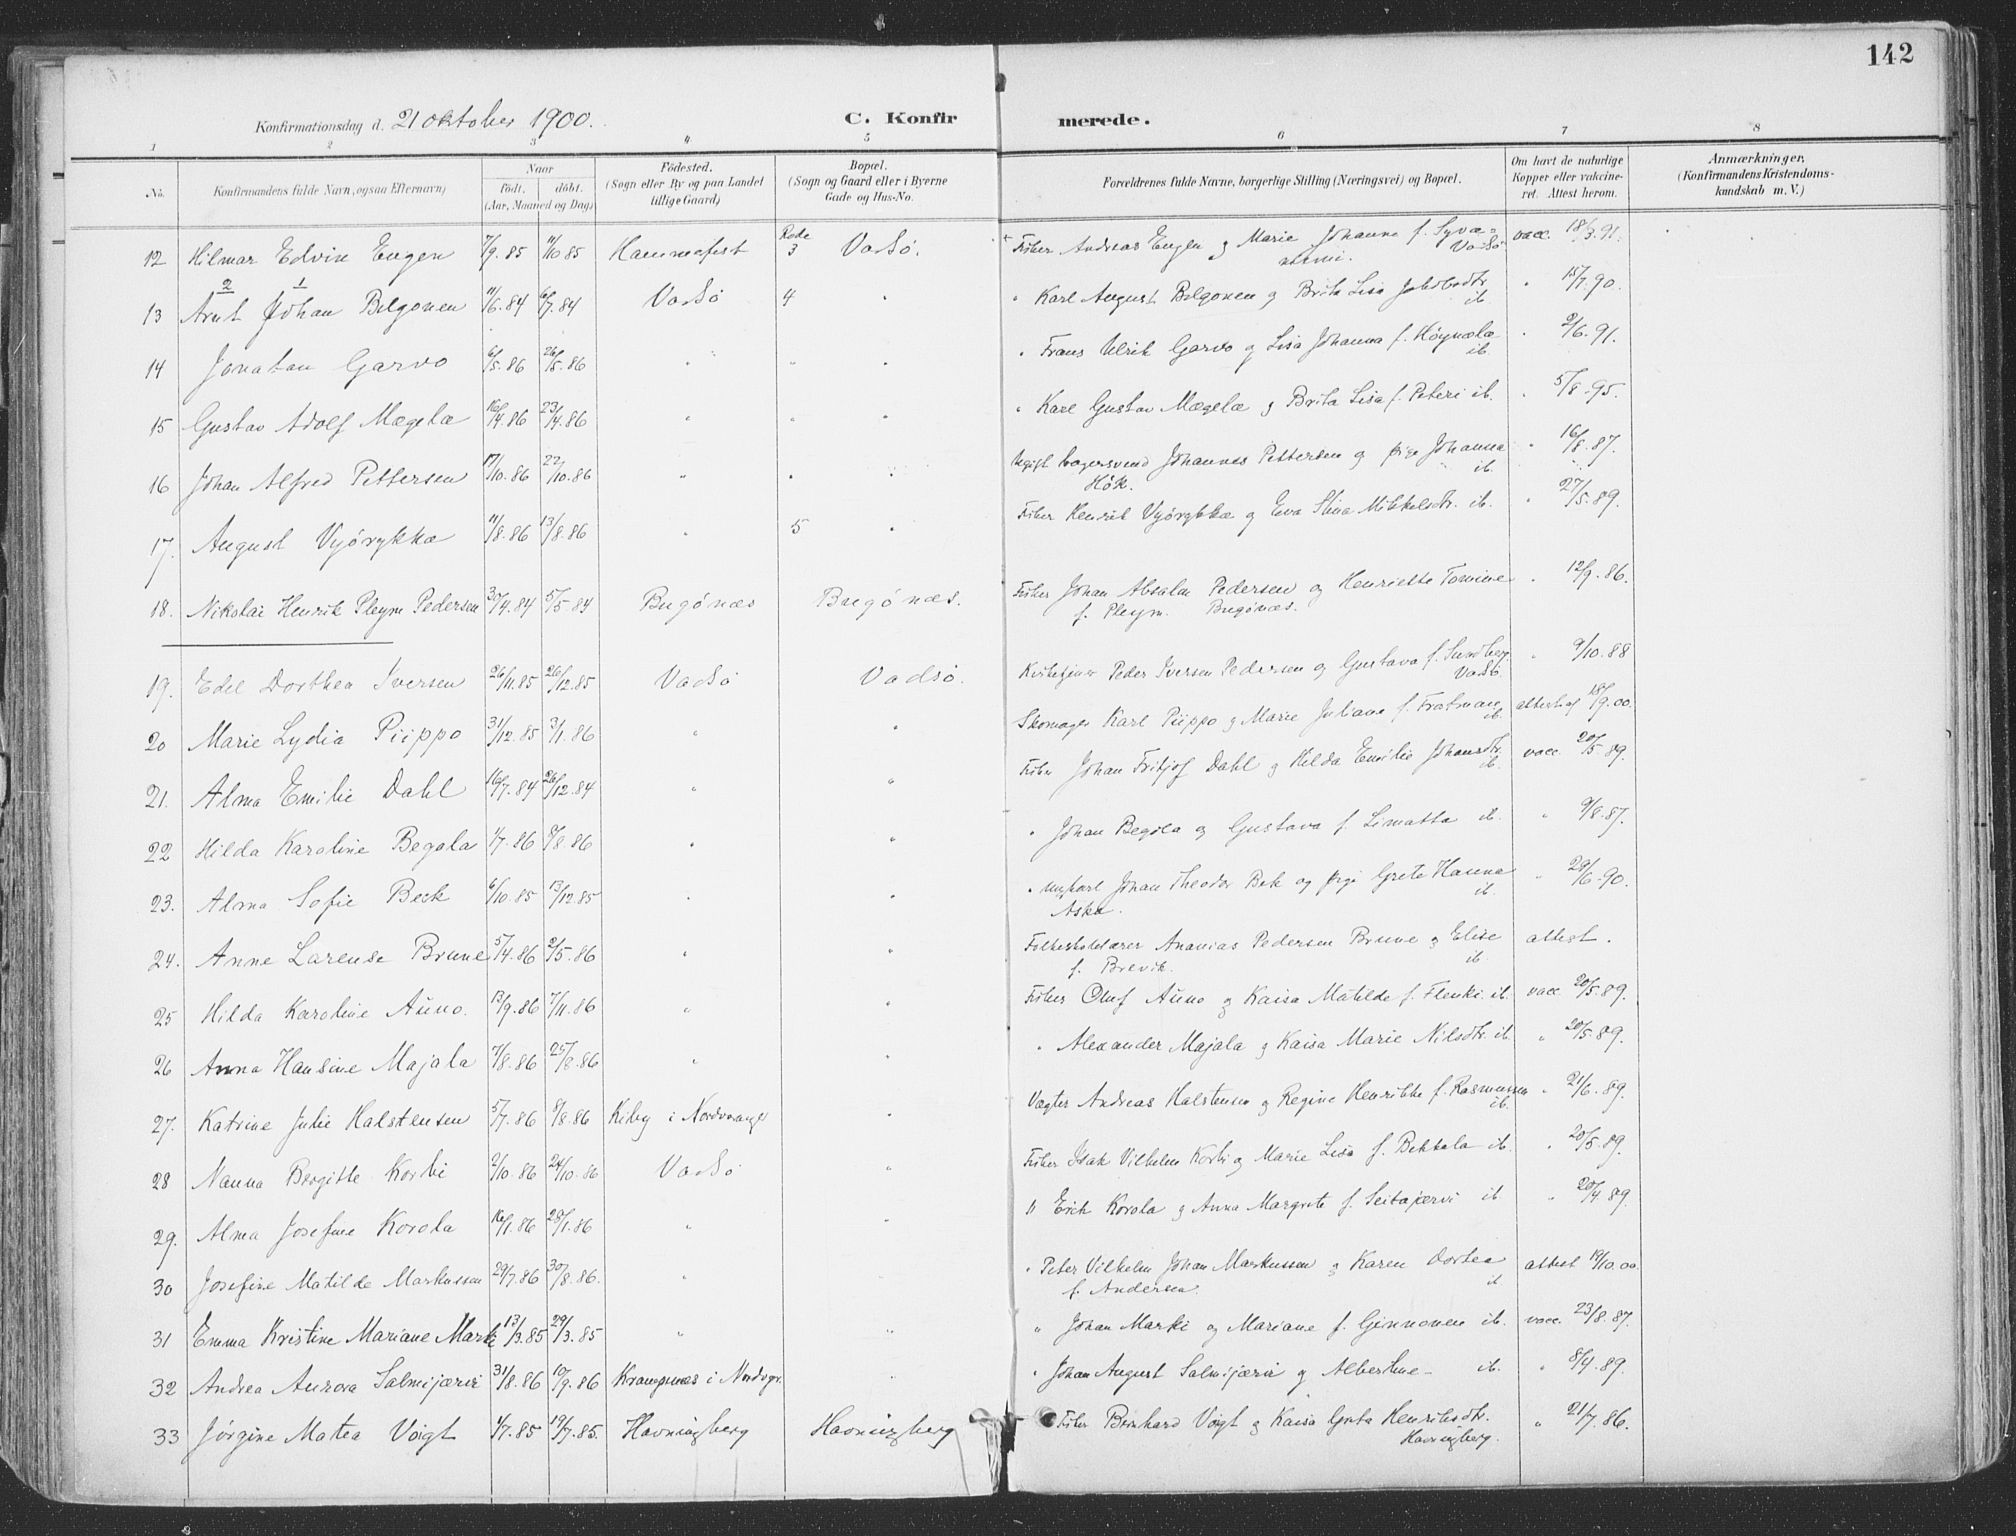 142
Konfirmationsdag d. 21 oktober 1900. C. Konfirmerede.
1 2 3 4 5 6 7 8
No. Konfirmandens fulde Navn, ogsaa Efternavn) Naar födt. döbt. (Aar, Maaned og Dag) Födested. (Sogn eller By og paa Landet tillige Gaard) Bopæl. (Sogn og Gaard eller i Byerne Gade og Hus-No. Forældrenes fulde Navne, borgerlige Stilling (Næringsvei) og Bopæl. Om havt de naturlige Kopper eller vakcineret. Attest herom. Anmærkninger, (Konfirmandens Kristendomskundskab m. V.)
12 Hilmar Edvin Eugen 7/9.85 11/10 85 Hammefest Rode 3 Vadsö. Fisker Andreas Eugen g Marie Johanne f. Vadsö vacc. 18/3.91.
13 Arnt Johan Belgonen 11/6.84 6/7.84 Vadsö 4 " " Karl August Belgonen g Brita Lisa Jakobsdtr. ib. " 15/7.90.
14 Jonatan Garvo 6/5.86 26/5.86 " " " " Frans Ulrik Garvo og Lisa Johanna f. ib. " 2/6.91.
15 Gustav Adolf Mægelæ 16/4.86 23/4.86 " " " " Karl Gustav Mægelæ g Brita Lisa f. Peteri ib. " 5/8.95.
16 Johan Alfred Pettersen 17/10.86 22/10.86 " " " Ugift bagersvend Johannes Pettersen og pige Johanna Hök. ib. " 16/8.87.
17. August Vyörykkæ 11/8.86 13/8.86 " 5 " Fisker Henrik Vyörykkæ og Eva Stina Mikkelsdtr. ib. " 27/5.89.
18. Nikolai Henrik Pleym Pedersen 30/4.84 5/5.84 Bugönæs Bugönæs. Fisker Johan Absalm Pedersen og Henriette Tomine f. Pleym. Bugönæs. " 12/9.86.
19. Edel Dorthea Iversen 26/11.85 26/12.85 Vadsö Vadsö. Kirketjener Peder Iversen Pedersen og Gustava f. Sundberg Vadsö. " 9/10.88
20 Marie Lydia Piippo 31/12.85 3/1.86 " " Skomager Karl Piippo g Marie Juliane f. ib. attest af 18/9.00.
21. Alma Emilie Dahl 16/7.84 26/12.84 " " Fisker Johan Fritjof Dahl g Hilda Emilie Johansdtr. ib. vacc. 20/5.89.
22 Hilda Karoline Begala 1/7.86 8/8.86 " " " Johan Begola og Gustava f. Limatta ib. " 9/8.87.
23. Alma Sofie Beck 6/10.85 13/12.85 " " " ungkarl Johan Theodor Bek og pige Grete Hanna Aska. ib. " 29/6.90.
24. Anne Larense Brune 5/4.86 2/5.86 " " Folkeskolelærer Ananias Pedersen Brune g Elise f. Brevik. ib. attest.
25 Hilda Karoline Auno. 13/9.86 7/11.86 " " Fisker Oluf Auno g Kaisa Matilde f. Flenki. ib. vacc. 20/5.89.
26 Anna Hansine Majala 7/8.86 25/8.86 " " " Alexander Majala g Kaisa Marie Nilsdtr. ib. " 20/5.89.
27. Katrine Julie Halstensen 5/7.86 8/8.86 Kiby i Nordvrange " Vægter Andreas Halstensen g Regine Henrikke f. Rasmussen ib. " 21/6.89.
28 Nanna Bergitte Korbi 2/10.86 24/10.86 Vadsö " Fisker Isak Vilhelm Korbi g Marie Lisa f. Bekkela ib. " 20/5.89.
29. Alma Josefine Korola 16/1.86 28/1.86 " " " Erick Korola g Anna Margrete f. Seitajervi ib. " 20/4.89.
30 Josefine Matilde Markussen 29/7.86 30/8.86. " " " Peter Vilhelm Johan Markussen g Karen Dortea f. Andersen ib. attest 19/10.00.
31 Emma Kristine Mariane Marki 13/3.85 29/3.85 " " " Johan Marki og Mariane f. Ginnonen ib. vacc. 23/8.87.
32 Andrea Aurora Salmijærvi 31/8.86 10/9.86 Krampenæs i Nordvgr. " " Johan August Salmijærvi og Albertine ib. " 8/4.89.
33 Jörgine Matea Voigt 1/7.85 19/7.85. Havningberg Havningberg Fisker Bernhard Voigt g Kaisa Greta Henriksdtr. Havningberg. " 21/7.86.